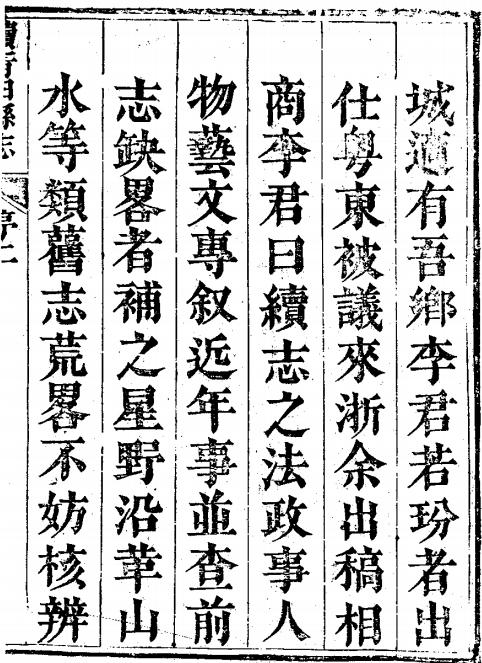 城適有吾鄉李君若玢者出
仕粤東被議來浙余出稿相
商李君曰續志之法政事人
物藝文專叙近年事並查前
志缺畧者補之星野沿革山
水等類舊志荒畧不妨核辨
縣志
序二